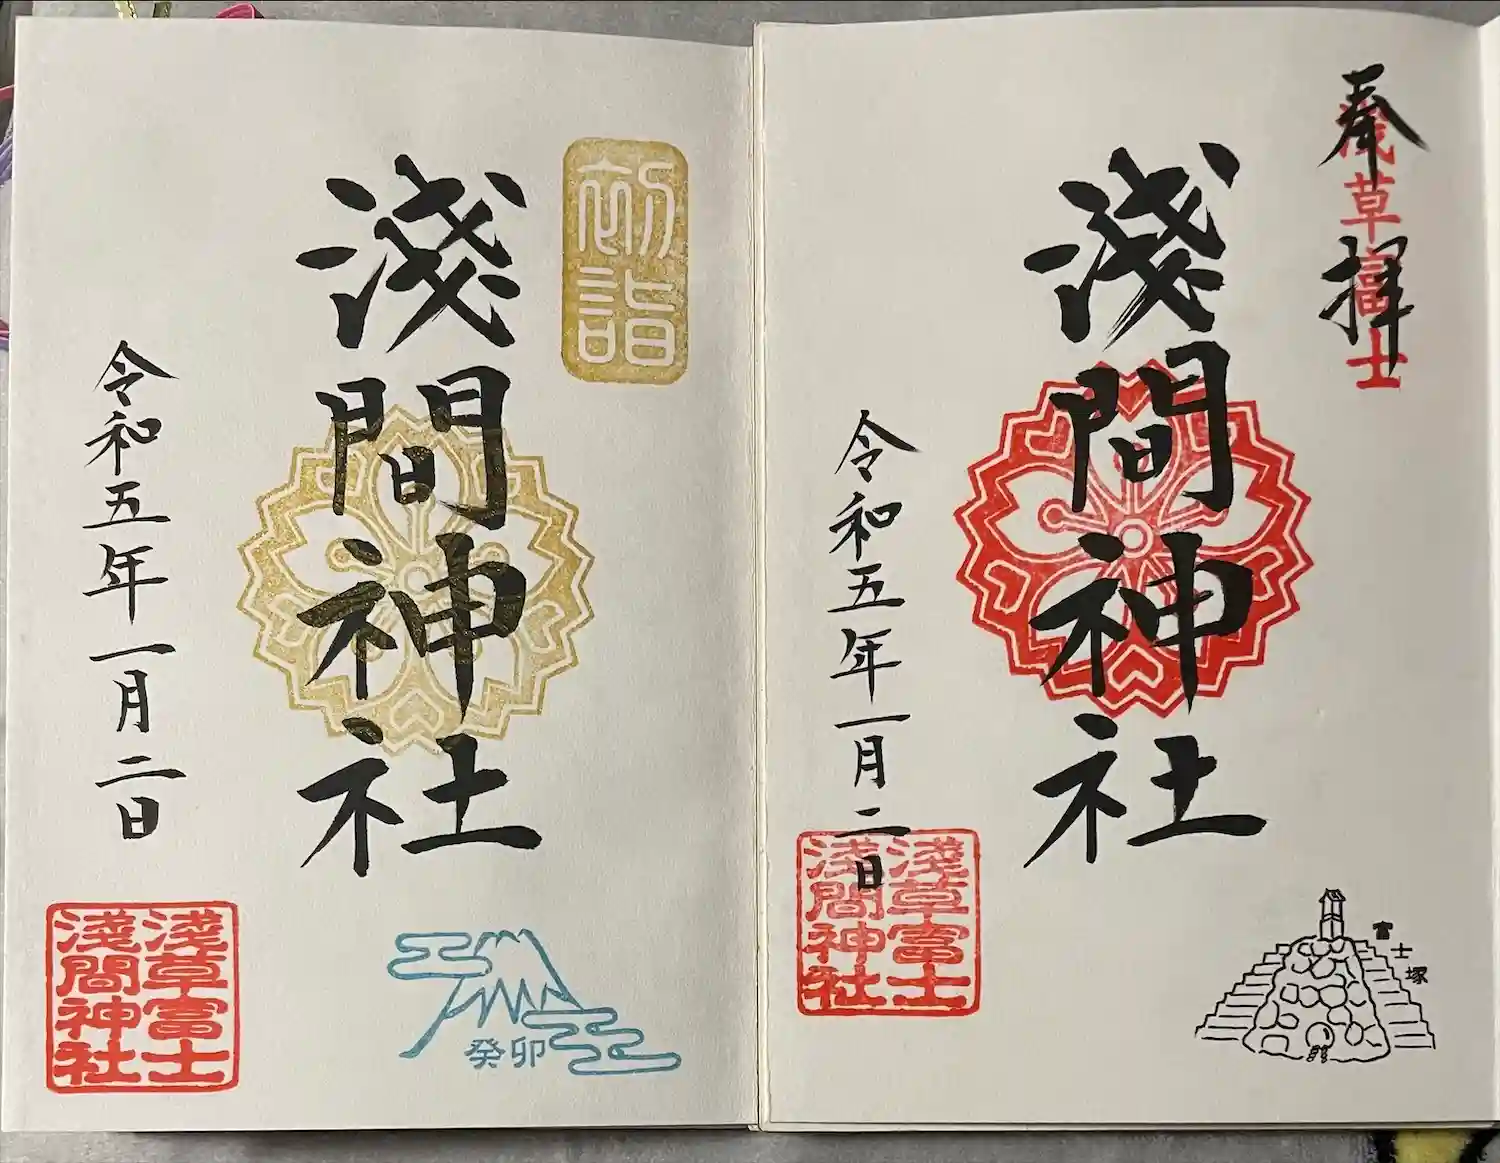 奉拝
淺草富士
淺間神社
令和五年一月二日
淺草富士
淺間神社
富士塚
初詣
淺間神社
令和五年一月二日
淺草富士
淺間神社
癸卯